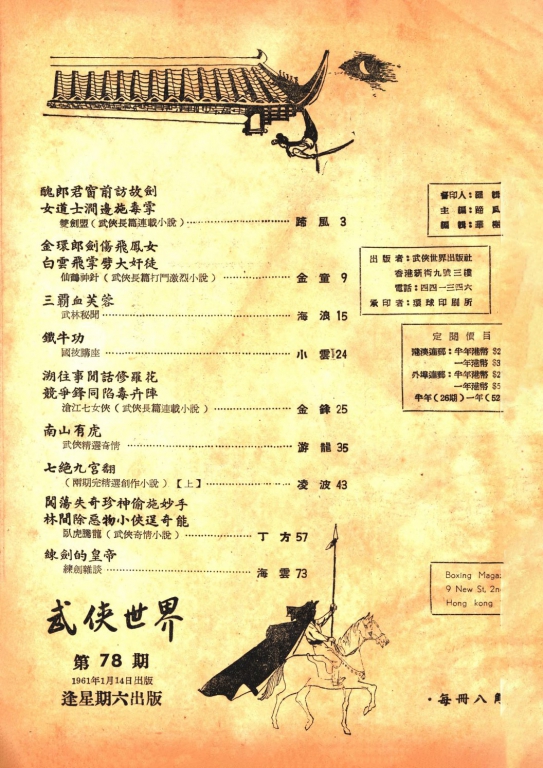 醜郎君窗前訪故劍
女道士澗邊施毒掌
雙劍盟(武俠長篇連載小說)⋯⋯蹄風 3
金環郎劍傷飛鳳女
白雲飛掌劈大奸徒
仙鶴神針(武俠長篇打鬥激烈小說)⋯⋯金童 9
三霸血芙蓉
武林秘聞⋯⋯海浪 15
鐵牛功
國技講座⋯⋯小雲 24
溯往事閒話修羅花
競爭鋒同陷毒卉陣
滄江七女俠(武俠長篇連載小說)⋯⋯金鋒 25
南山有虎
武俠精選奇情⋯⋯游龍 35
七絕九宮翻
(兩期完精選創作小說)【上】⋯⋯凌波 43
闖蕩失奇珍神偷施妙手
林間除惡物小俠逞奇能
臥虎騰龍(武俠奇情小說)⋯⋯丁方 57
練劍的皇帝
練劍雜談⋯⋯海雲 73
武俠世界
第 78 期
1961年1月14日出版
逢星期六出版
督印人:羅
主編:蹄風
編輯:
出版者:武俠世界出版社
香港新街九號三樓
電話:四四一三四六
承印者:環球印刷所
定閱價目
港澳連郵:半年港幣 $2
一年港幣 $3
外埠連郵:半年港幣 $2
一年港幣 $5
半年(26期)一年(52
Boxing Maga
9 New St, 2n
Hong kong
・每冊八角